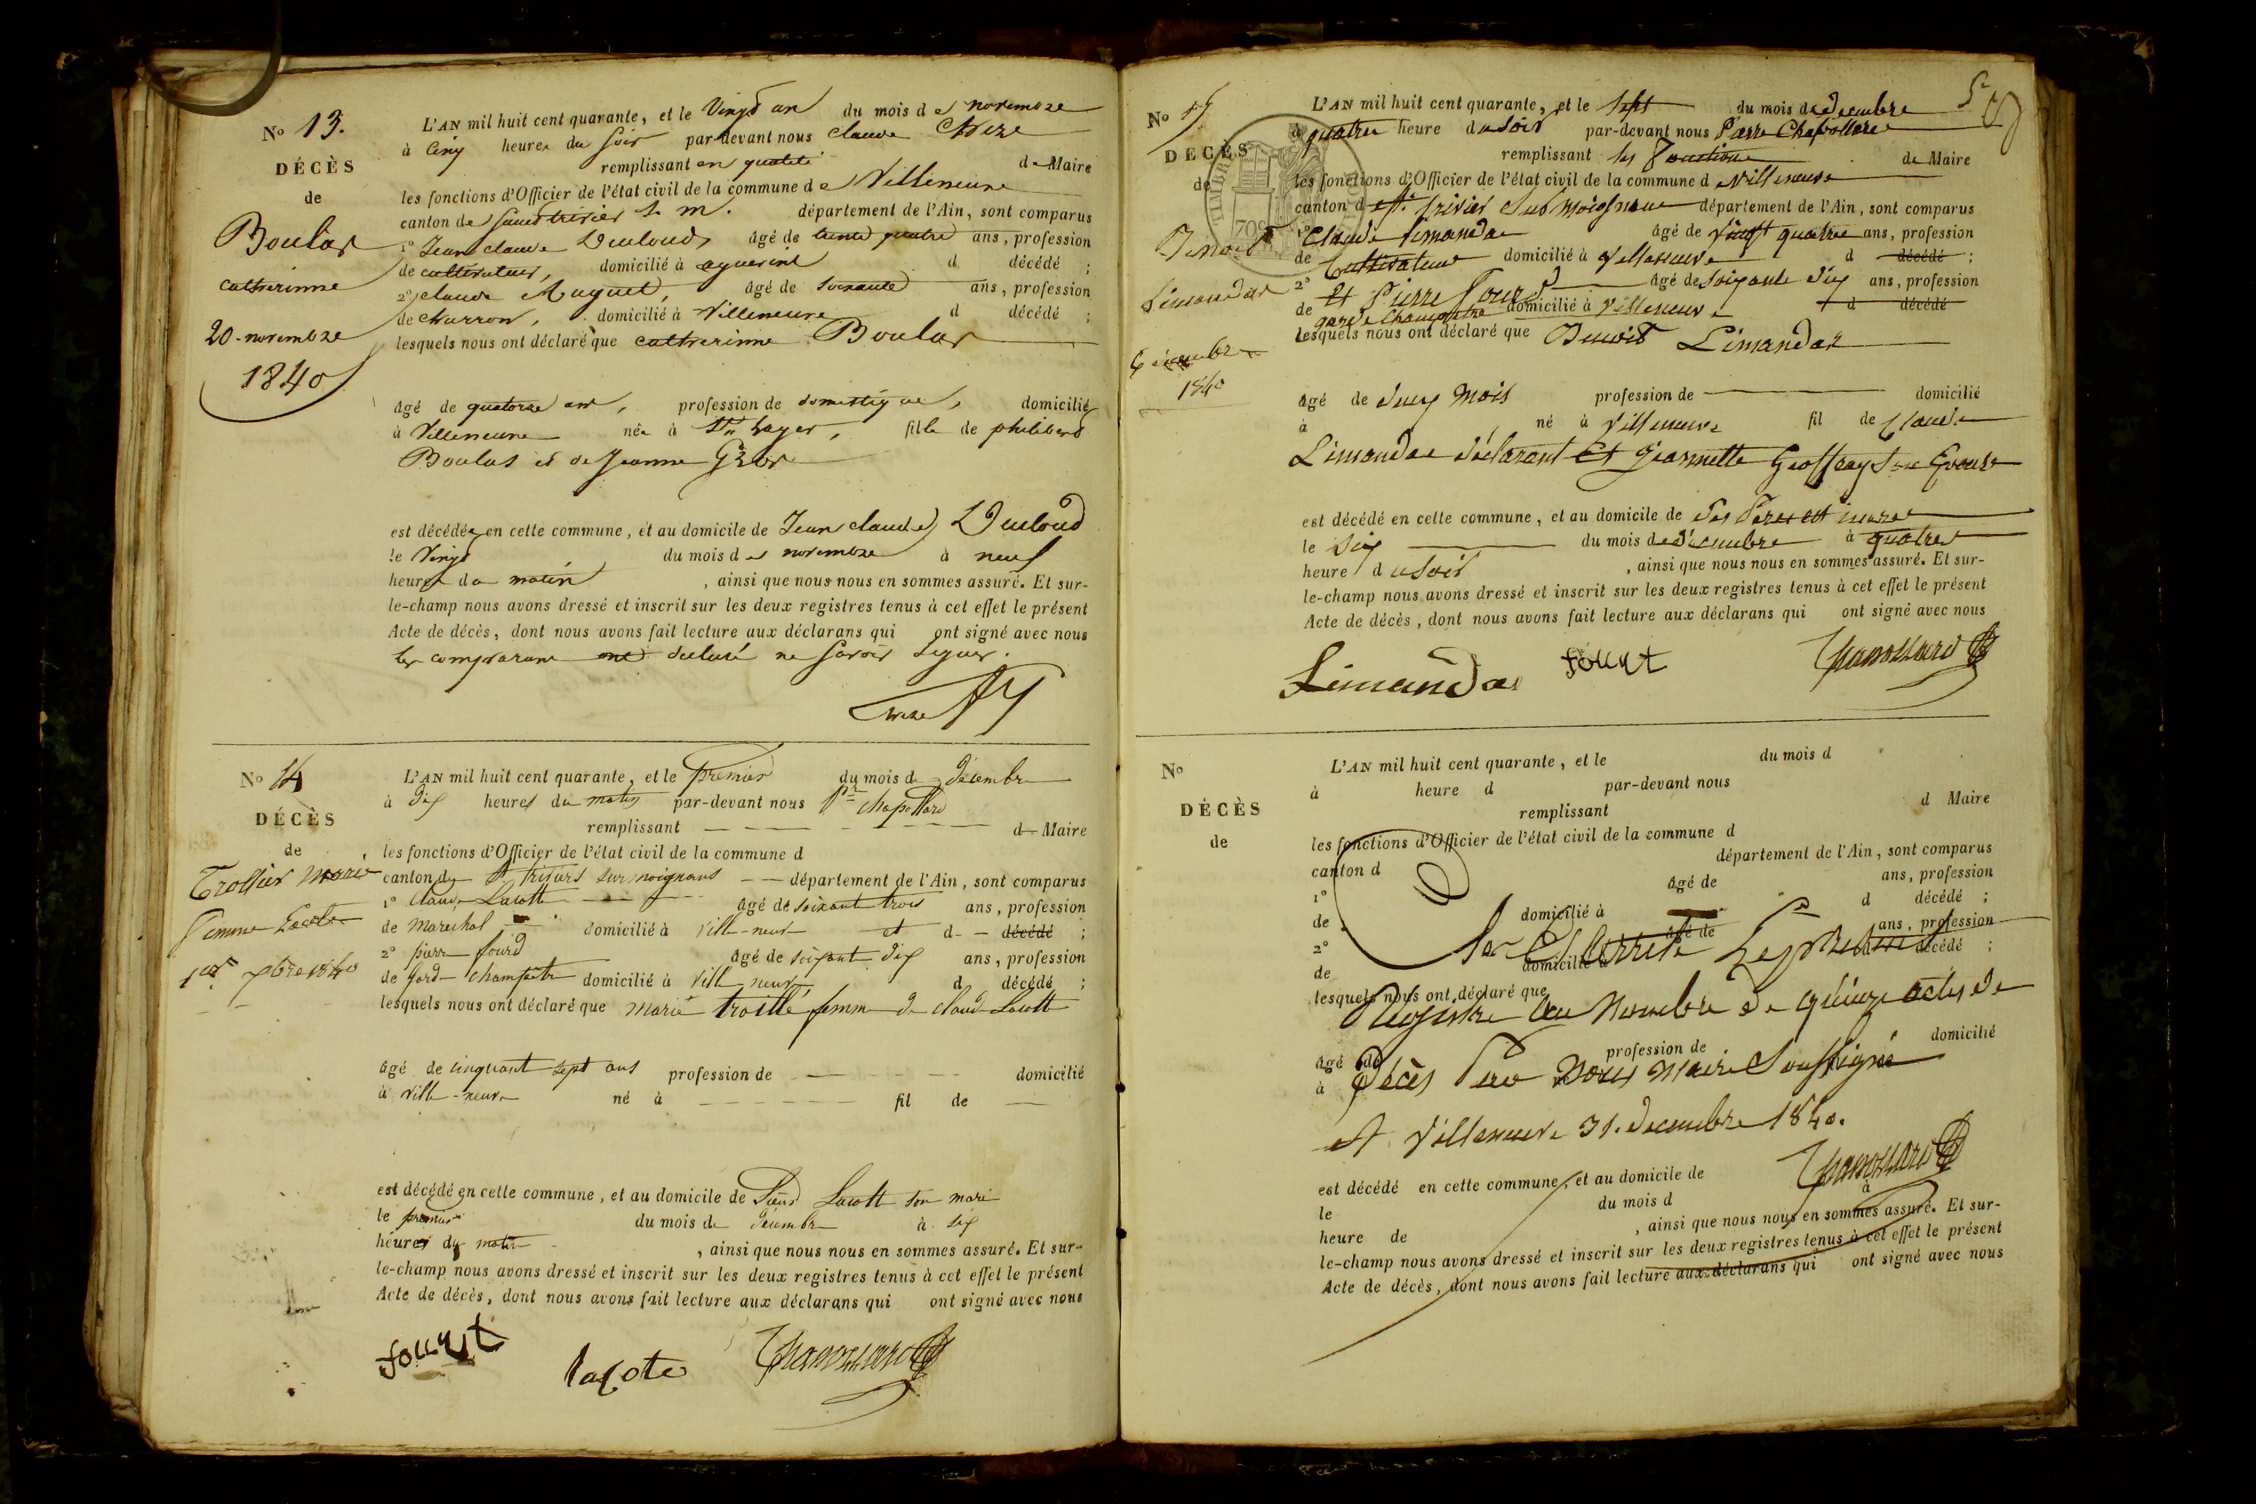 No 13.
DÉCÈS
de
Boulas
catherinne
20 novembre
1840
L'AN mil huit cent quarante, et le vingt un du mois de novembre
à cinq heures du soir par-devant nous claude
remplissant en qualité de Maire
les fonctions d'Officier de l'état civil de la commune de Villeneuve
canton de Saint trivier s. m. département de l'Ain, sont comparus
1° Jean claude Duloud, âgé de trente quatre ans, profession
de cultivateur, domicilié à d décédé ;
2° claude Muguet, âgé de soixante ans, profession
de charron, domicilié à Villeneuve d décédé ;
lesquels nous ont déclaré que catherinne Boulas
âgé de quatorze ans, profession de domestique, domicilié
à Villeneuve née à fille de philibert
Boulas et de Jeanne
est décédée en cette commune, et au domicile de Jean claude Duloud
le vingt du mois de novembre à neuf
heures du matin, ainsi que nous nous en sommes assuré. Et sur-
le-champ nous avons dressé et inscrit sur les deux registres tenus à cet effet le présent
Acte de décès, dont nous avons fait lecture aux déclarans qui ont signé avec nous
les comparans ont déclaré ne savoir signer.
No 14
DÉCÈS
de
Trollier marie
femme Lacote
1er Xbre 1840
L'AN mil huit cent quarante, et le premier du mois de décembre
à dix heures du matin par-devant nous Pre Chapollard
remplissant d Maire
les fonctions d'Officier de l'état civil de la commune d
canton de St triviers sur moignans département de l'Ain, sont comparus
1° Claude Lacott âgé de soixant trois ans, profession
de marechal domicilié à vill-neuve et d décédé ;
2° pierre fourd âgé de soixant dix ans, profession
de gard champetre domicilié à vill neuve d décédé ;
lesquels nous ont déclaré que marie trollié femme de claude Lacott
âgé de cinquant sept ans profession de domicilié
à vill-neuve né à fil de
est décédé en cette commune, et au domicile de Lacott son mari
le premier du mois de décembre à six
heures du matin, ainsi que nous nous en sommes assuré. Et sur-
le-champ nous avons dressé et inscrit sur les deux registres tenus à cet effet le présent
Acte de décès, dont nous avons fait lecture aux déclarans qui ont signé avec nous
lacote Chapollard
No 15
DÉCÈS
de
Benoit
Limandas
6 décembre
1840
L'AN mil huit cent quarante, et le sept du mois de decembre
à quatre heure du soir par-devant nous Pierre Chapollard
remplissant les fonctions de Maire
les fonctions d'Officier de l'état civil de la commune de villeneuve
canton de St. trivier sur moignans département de l'Ain, sont comparus
1° Claude limandas âgé de vingt quatre ans, profession
de Cultivateur domicilié à villeneuve d décédé ;
2° Et Pierre Fourd âgé de soixante dix ans, profession
de garde champetre domicilié à villeneuve d décédé
lesquels nous ont déclaré que Benoit Limandas
âgé de mois profession de domicilié
à né à villeneuve fil de Claude
Limandas déclarant Et jeannette Geoffray son Epouse
est décédé en cette commune, et au domicile de ses Pere et mere
le six du mois de decembre à quatre
heure du soir, ainsi que nous nous en sommes assuré. Et sur-
le-champ nous avons dressé et inscrit sur les deux registres tenus à cet effet le présent
Acte de décès, dont nous avons fait lecture aux déclarans qui ont signé avec nous
Limandas Chapollard
No
DÉCÈS
de
L'AN mil huit cent quarante, et le du mois d
à heure d par-devant nous
remplissant d Maire
les fonctions d'Officier de l'état civil de la commune d
canton d département de l'Ain, sont comparus
1° âgé de ans, profession
de domicilié à d décédé ;
2° âgé de ans, profession
de domicilié à décédé ;
Clos Et Arreté Le present
lesquels nous ont déclaré que
Registre au Nombre de quinze actes de
âgé de profession de domicilié
à
décès Par Nous Maire Soussigné
A Villeneuve 31. decembre 1840.
Chapollard
est décédé en cette commune, et au domicile de
le du mois d à
heure de, ainsi que nous nous en sommes assuré. Et sur-
le-champ nous avons dressé et inscrit sur les deux registres tenus à cet effet le présent
Acte de décès, dont nous avons fait lecture aux déclarans qui ont signé avec nous